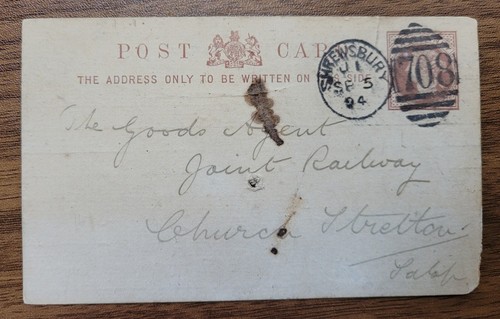 POST CARD
THE ADDRESS ONLY TO BE WRITTEN ON THIS SIDE
SHREWSBURY
SP 5
94
708
The Goods Agent
Joint Railway
Church Stretton
Salop